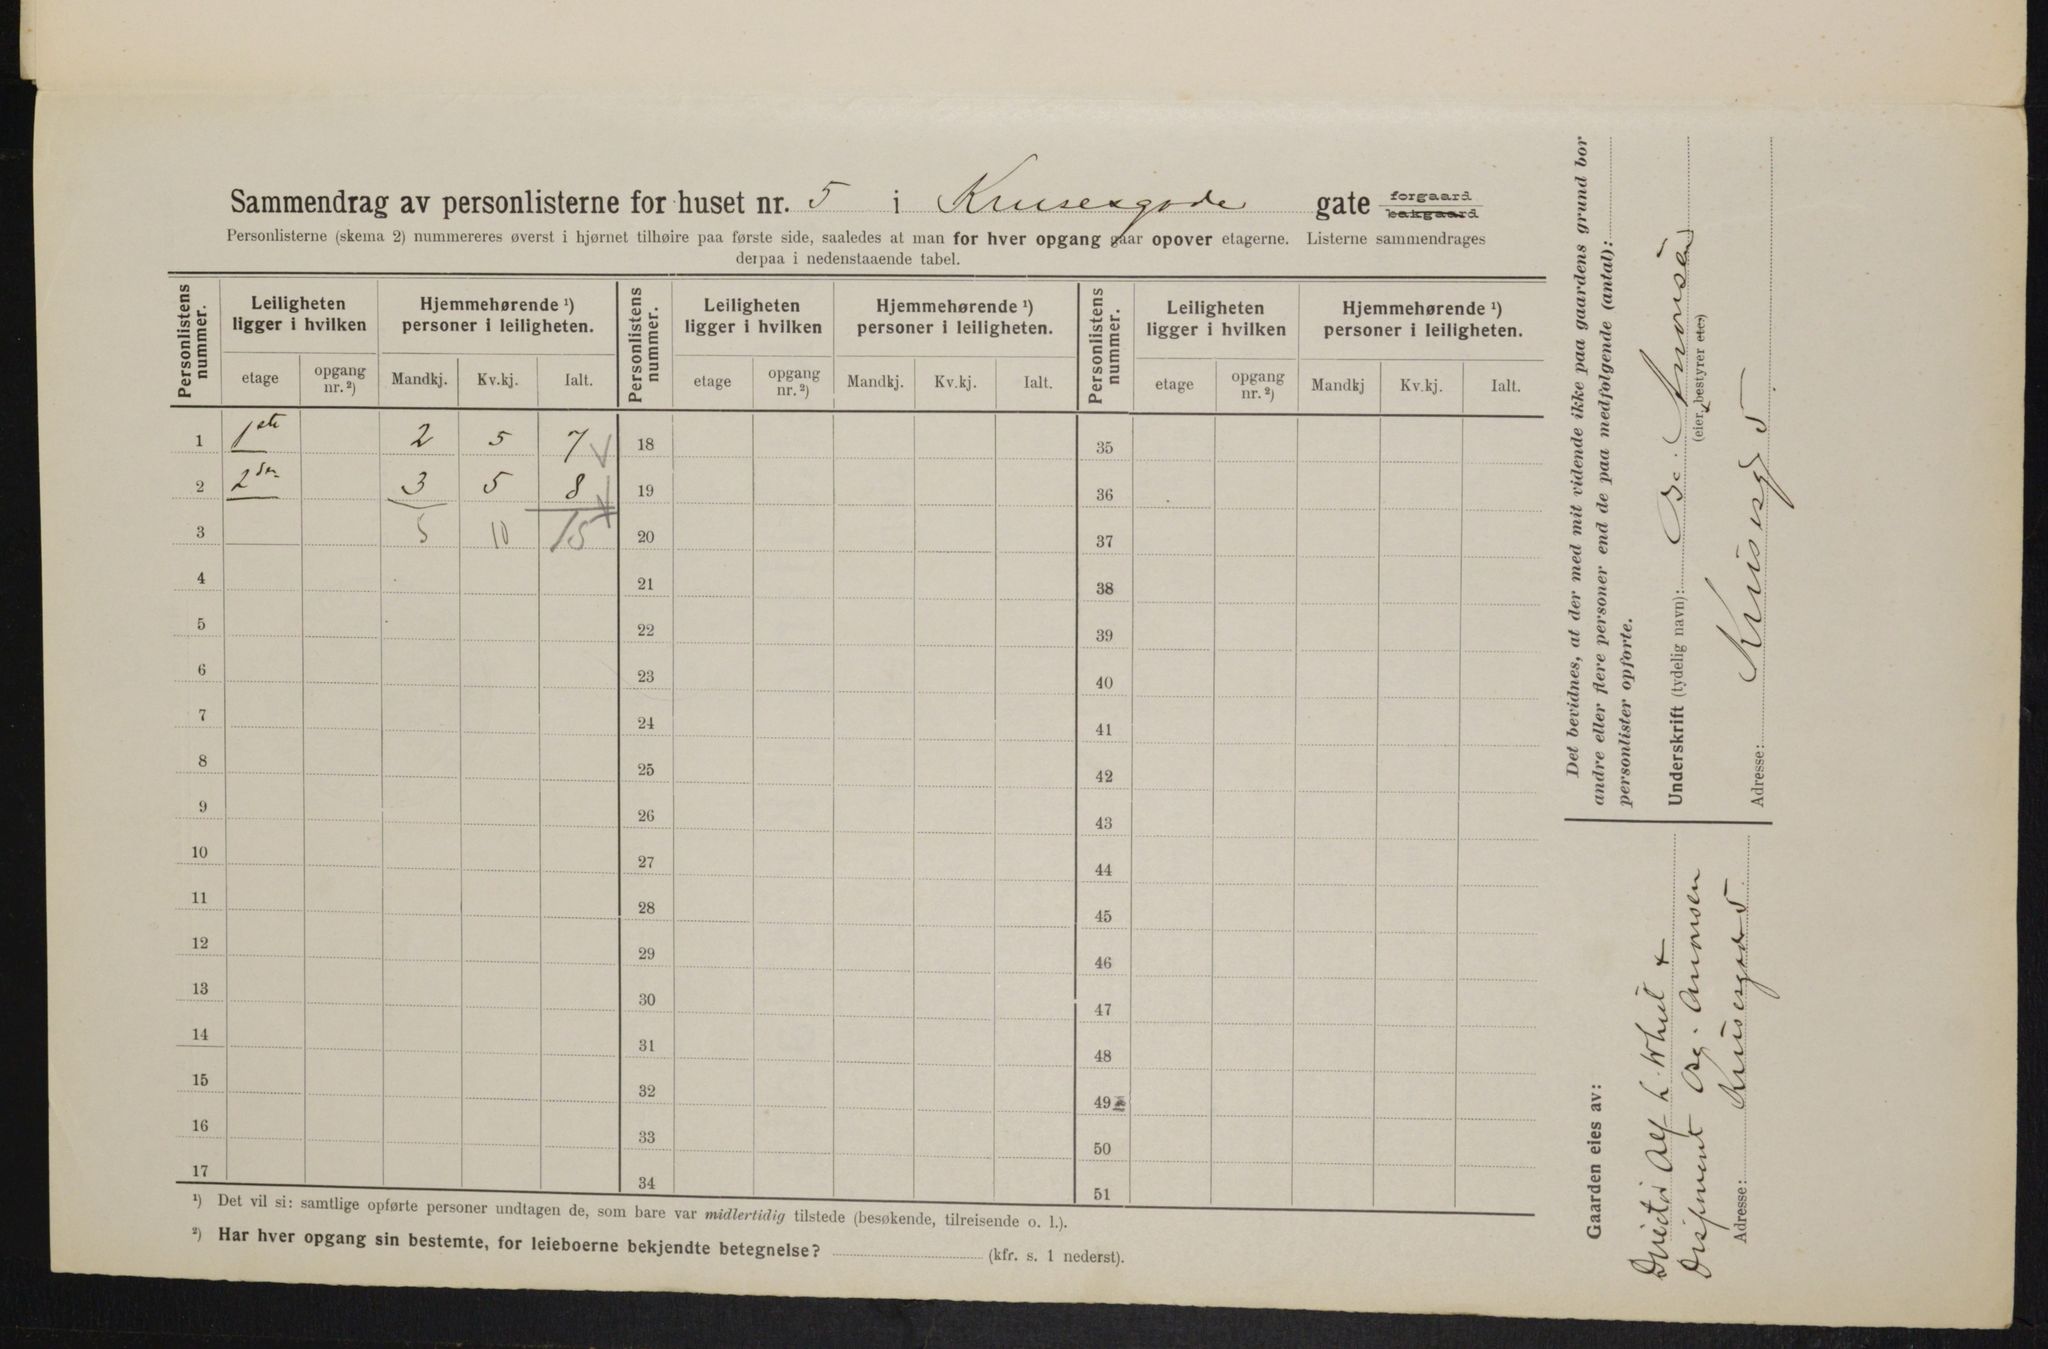 Sammendrag av personlisterne for huset nr. 5 i Krusesgade gate forgaard bakgaard
Personlisterne (skema 2) nummereres øverst i hjørnet tilhøire paa første side, saaledes at man for hver opgang gaar opover etagerne. Listerne sammendrages
derpaa i nedenstaaende tabel.
Personlistens nummer. Leiligheten ligger i hvilken Hjemmehørende ¹) personer i leiligheten. Personlistens nummer. Leiligheten ligger i hvilken Hjemmehørende ¹) personer i leiligheten. Personlistens nummer. Leiligheten ligger i hvilken Hjemmehørende ¹) personer i leiligheten.
etage opgang nr. ²) Mandkj. Kv.kj. Ialt. etage opgang nr. ²) Mandkj. Kv.kj. Ialt. etage opgang nr. ²) Mandkj Kv.kj. Ialt.
1 1ste 2 5 7 18 35
2 2den 3 5 8 19 36
3 5 10 15 20 37
4 21 38
5 22 39
6 23 40
7 24 41
8 25 42
9 26 43
10 27 44
11 28 45
12 29 46
13 30 47
14 31 48
15 32 49
16 33 50
17 34 51
¹) Det vil si: samtlige opførte personer undtagen de, som bare var midlertidig tilstede (besøkende, tilreisende o. l.).
²) Har hver opgang sin bestemte, for leieboerne bekjendte betegnelse? (kfr. s. 1 nederst).
Det bevidnes, at der med mit vidende ikke paa gaardens grund bor
andre eller flere personer end de paa medfølgende (antal):
personlister opførte.
Underskrift (tydelig navn): Amonsen
(eier, bestyrer etc)
Adresse: Krusesgd 5
Gaarden eies av:
Alf L. Whist +
Disponent Aug. Amonsen
Adresse: Krusesgade 5